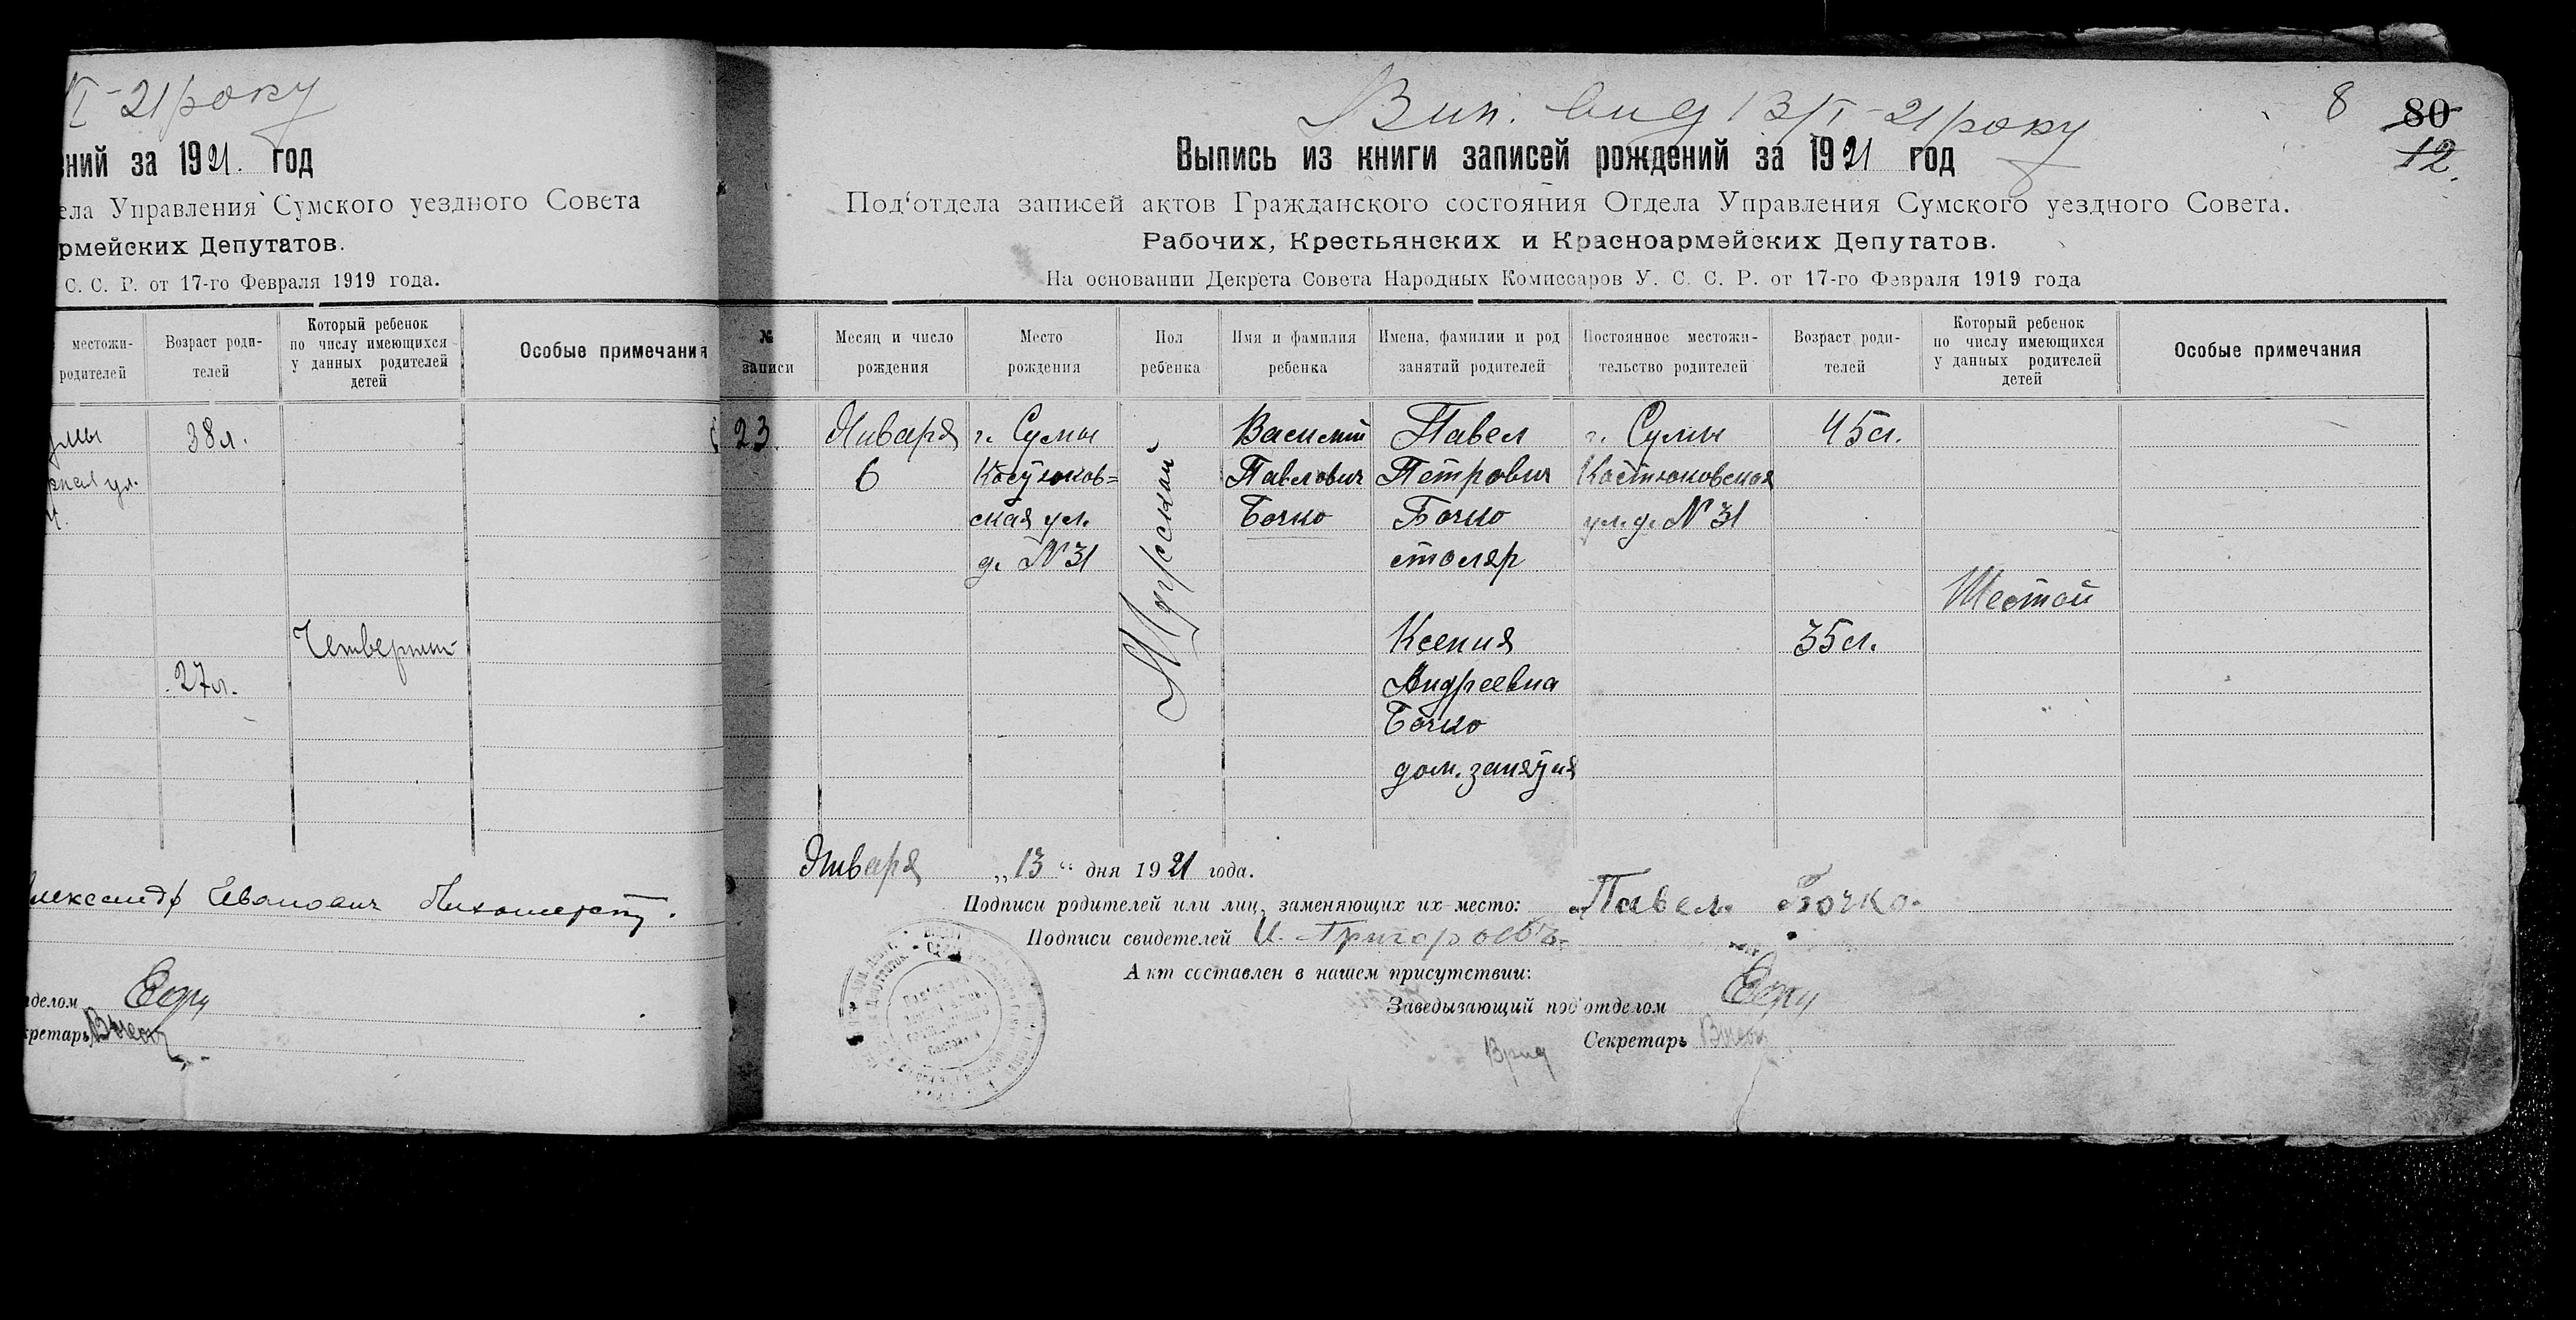 I-21 року
ний за 1921. год
ела Управления Сумского уездного Совета
рмейских Депутатов.
С. С. Р. от 17-го Февраля 1919 года.
местожи-
родителей
Возраст роди-
телей
Который ребенок
по числу имеющихся
у данных родителей
детей
Особые примечания
умы
рная ул.
38л.
27л.
Четверт
лександр Иванович
делом
кретарь
Вип. вид 13/I-21 року
8
80
12.
Выпись из книги записей рождений за 1921 год
Под'отдела записей актов Гражданского состояния Отдела Управления Сумского уездного Совета.
Рабочих, Крестьянских и Красноармейских Депутатов.
На основании Декрета Совета Народных Комиссаров У. С. С. Р. от 17-го Февраля 1919 года
№
записи
Месяц и число
рождения
Место
рождения
Пол
ребенка
Имя и фамилия
ребенка
Имена, фамилии и род
занятий родителей
Постоянное местожи-
тельство родителей
Возраст роди-
телей
Который ребенок
по числу имеющихся
у данных родителей
детей
Особые примечания
23
Января
6
г. Сумы
Костюков=
ская ул.
д. № 31
Мужской
Василий
Павлович
Бочко
Павел
Петрович
Бочко
столяр
Ксения
Андреевна
Бочко
дом. занятия
г. Сумы
Костюковская
ул. д. № 31
45л.
35л.
Шестой
Января „13“ дня 1921 года.
Подписи родителей или лиц, заменяющих их место: Павел Бочко.
Подписи свидетелей И. Григоровъ
Акт составлен в нашем присутствии:
Заведызающий под'отделом
Секретарь
Врид